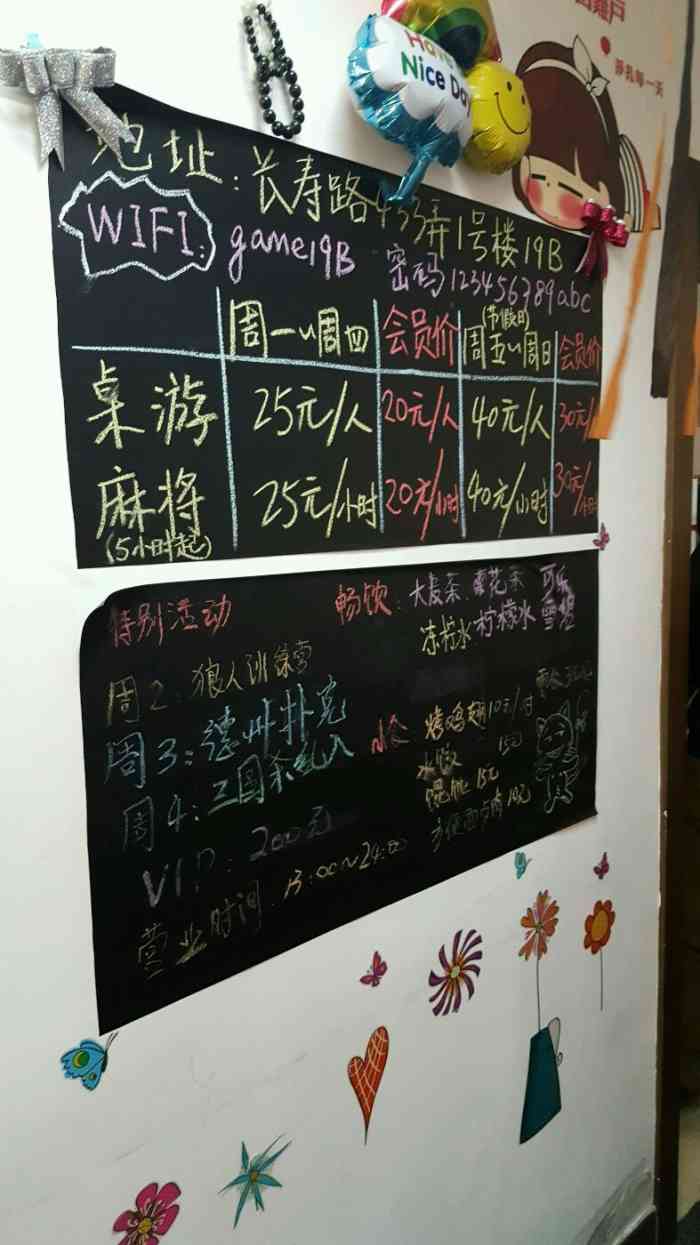 Have a
Nice Day
挣扎每一天
地址:长寿路433弄1号楼19B
WIFI: game19B 密码123456789abc
周一~周四 会员价 (节假日)周五~周日 会员价
桌游 25元/人 20元/人 40元/人 30元/
麻将 25元/小时 20元/小时 40元/小时 30元/小时
(5小时起)
特别活动 畅饮:大麦茶 雪花茶 可乐
冻柠水 柠檬水 雪碧
周2:狼人训练营
周3:德州扑克 小食 烤鸡翅10元/对
周4:三国杀乱入 水饺 15元
馄饨 15元
VIP:200元 方便面 10元
营业时间:13:00~24:00